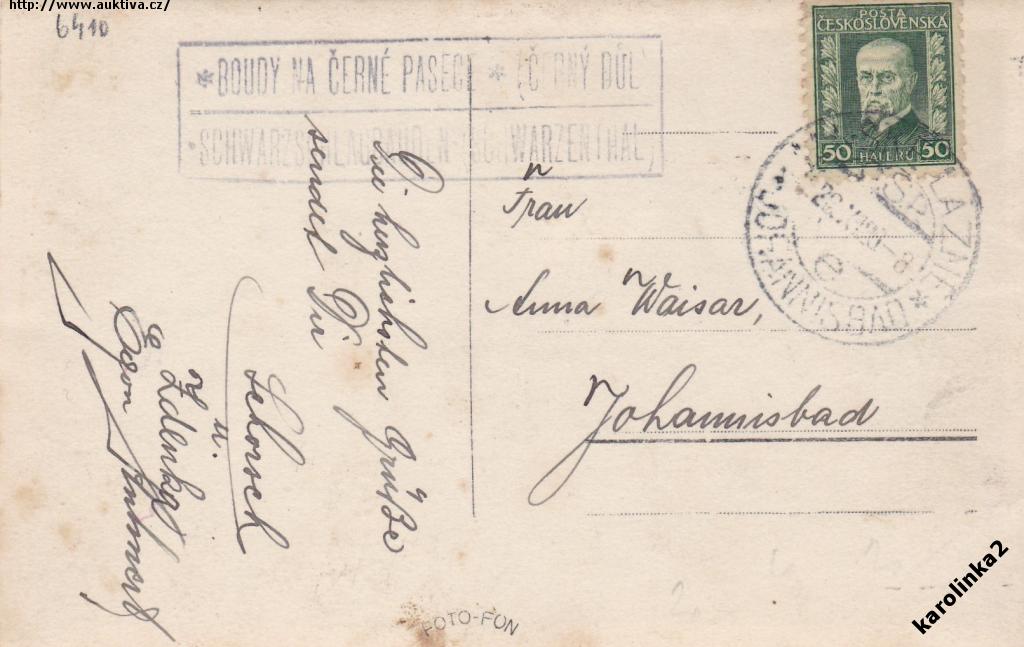 http://www.auktiva.cz/
6410
* BOUDY NA ČERNÉ PASECE * (ČERNÝ DŮL)
SCHWARZSCHLAGBAUDEN (SCHWARZENTHAL)
POSTA
ČESKOSLOVENSKA
50 HALERU 50
LÁZNĚ * (JOHANNISBAD)
e
Die herzlichsten Grüße
sendet Dir
Schorsch
u.
Zdenka
Egon
Frau
Anna Waisar,
Johannisbad
FOTO-FON
karolinka2